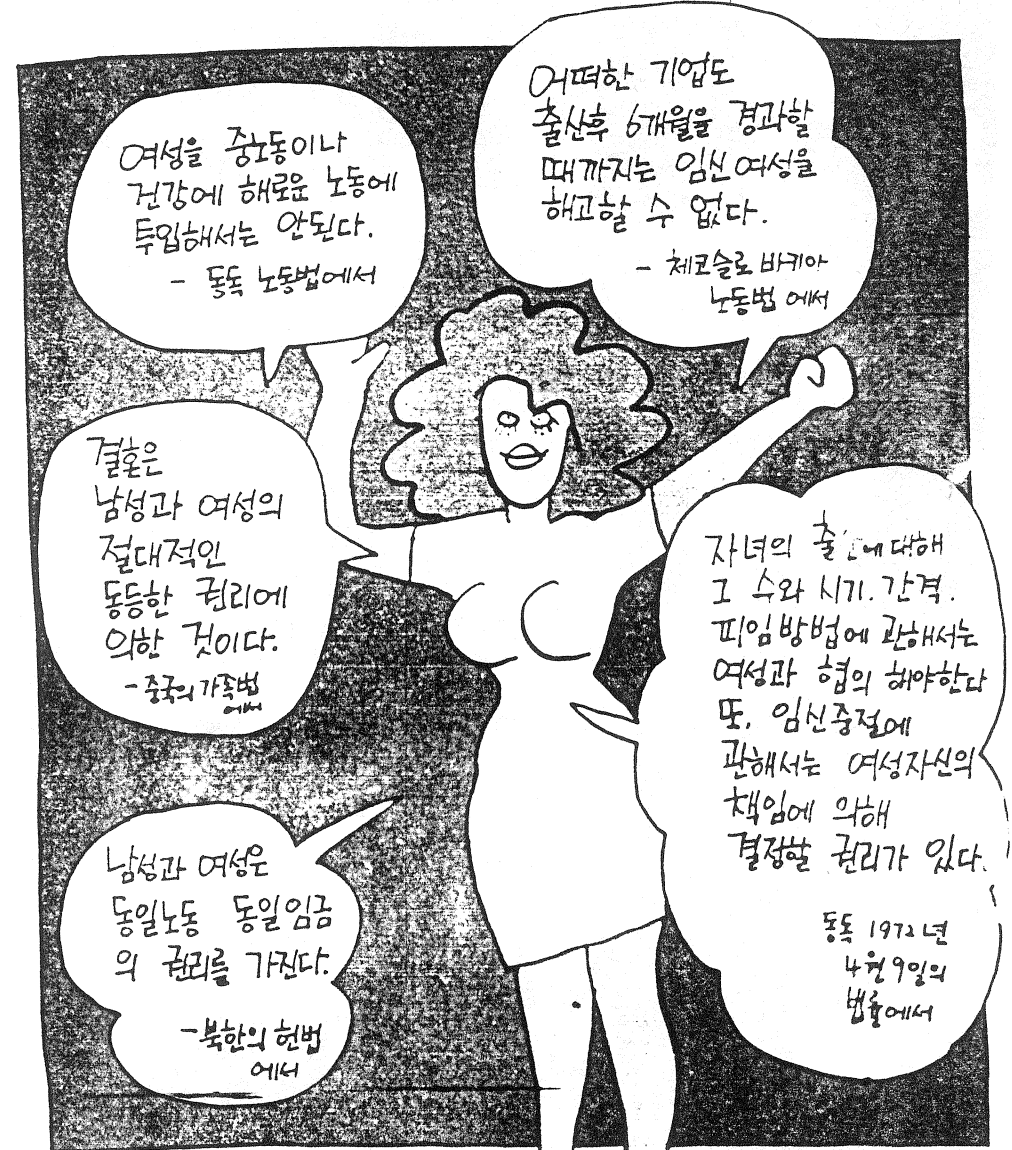 여성을 중노동이나
건강에 해로운 노동에
투입해서는 안된다.
- 동독 노동법에서
어떠한 기업도
출산후 6개월을 경과할
때까지는 임신여성을
해고할 수 없다.
- 체코슬로바키아
노동법에서
결혼은
남성과 여성의
절대적인
동등한 권리에
의한 것이다.
- 중국의 가족법
에서
자녀의 대해
그 수와 시기. 간격.
피임방법에 관해서는
여성과 협의 해야한다
또. 임신중절에
관해서는 여성자신의
책임에 의해
결정할 권리가 있다.
동독 1972년
4월 9일의
법률에서
남성과 여성은
동일노동 동일임금
의 권리를 가진다.
- 북한의 헌법
에서